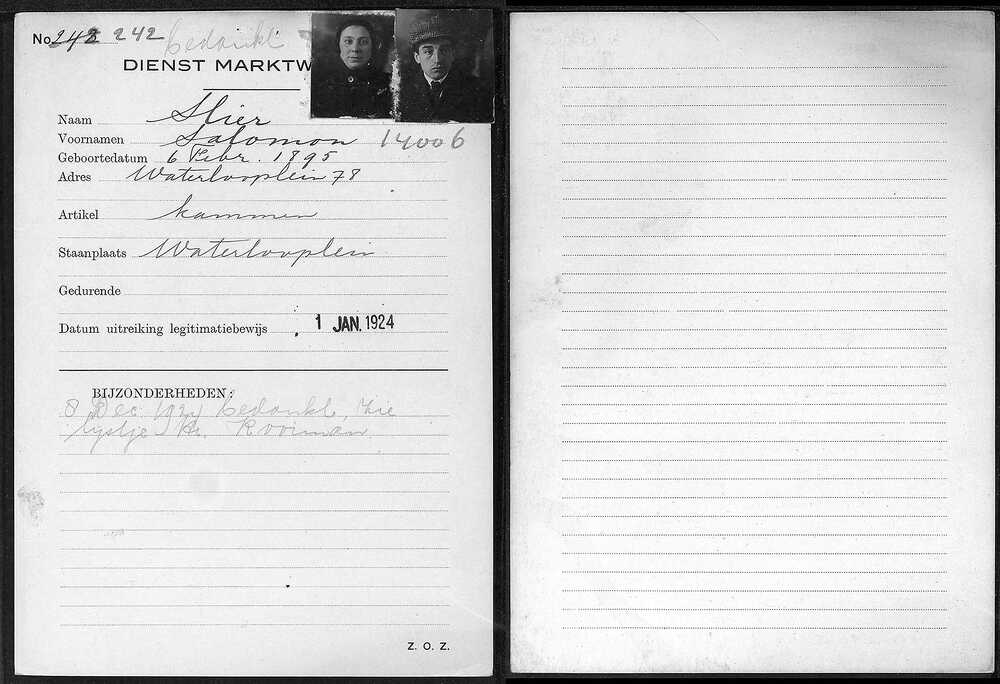 No. 242 242 bedankt
DIENST MARKTW
Naam Slier
Voornamen Salomon 14006
Geboortedatum 6 Febr. 1895
Adres Waterlooplein 78
Artikel kammen
Staanplaats Waterlooplein
Gedurende
Datum uitreiking legitimatiebewijs 1 JAN. 1924
BIJZONDERHEDEN:
8 Dec. 1924 bedankt, zie
lijstje Kooiman
Z. O. Z.